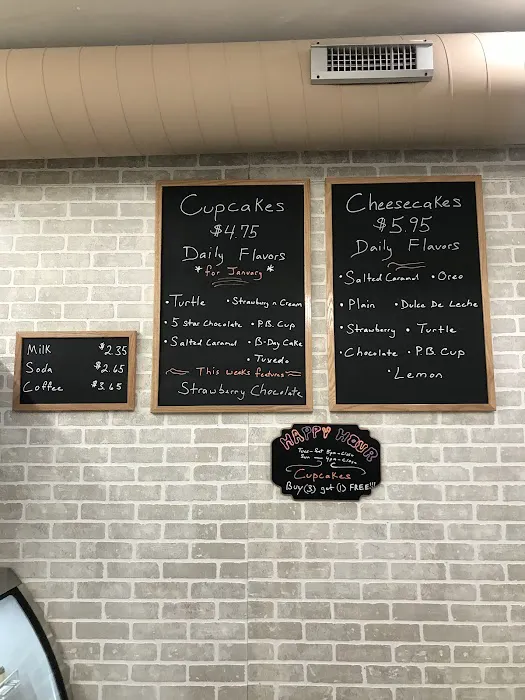 Cupcakes
$4.75
Daily Flavors
*for January*
• Turtle • Strawbury n Cream
• 5 Star Chocolate • P.B. Cup
• Salted Caramel • B-Day Cake
• Tuxedo
This weeks features
Strawberry Chocolate
Cheesecakes
$5.95
Daily Flavors
• Salted Caramel • Oreo
• Plain • Dulce De Leche
• Strawberry • Turtle
• Chocolate • P.B. Cup
• Lemon
Milk $2.35
Soda $2.65
Coffee $3.65
HAPPY HOUR
Tues-Sat
Sun
Cupcakes
Buy (3) get (1) FREE!!!